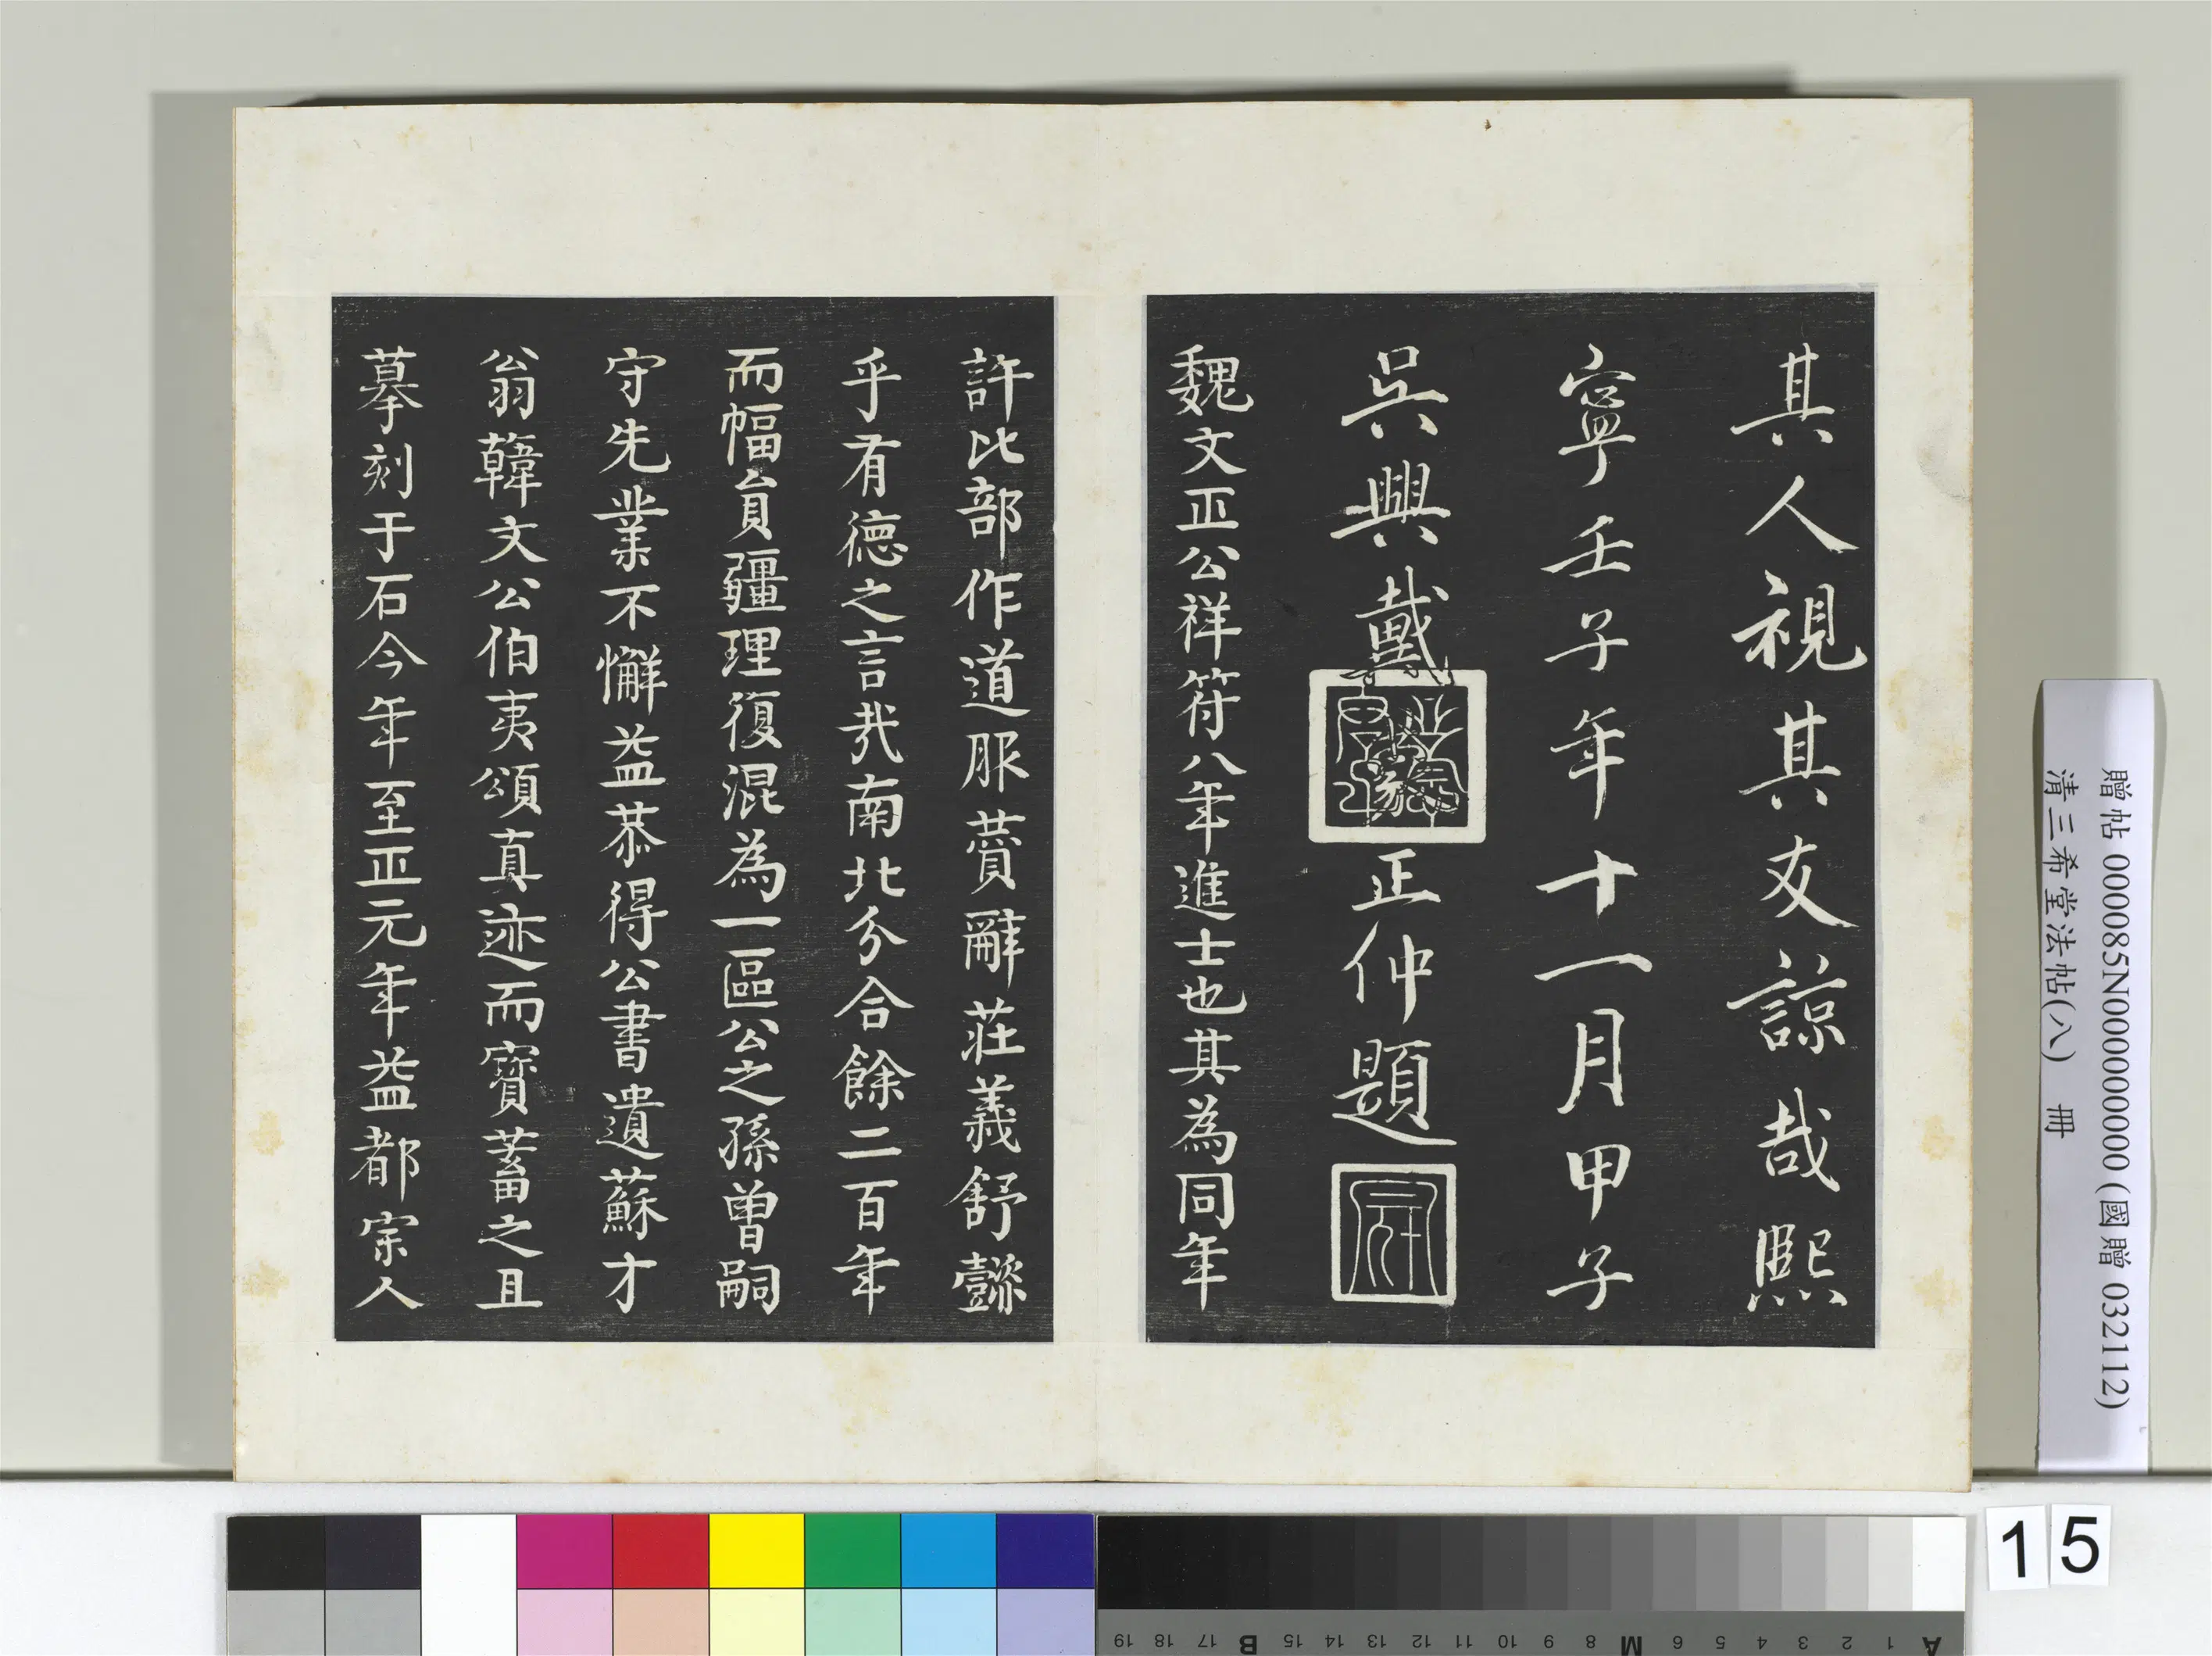 其人視其友諒哉熙
寧壬子年十一月甲子
吳興戴蒙正仲題
魏文正公祥符八年進士也其為同年
許比部作道服賛辭莊義舒懿
乎有德之言哉南北分合餘二百年
而幅員疆理復混為一區公之孫曾嗣
守先業不懈益恭得公書遺蘇才
翁韓文公伯夷頌真迹而寳蓄之且
摹刻于石今年至正元年益都宗人
贈帖 000085N000000000 (國贈 032112)
清三希堂法帖(八) 冊
15
A 1 2 3 4 5 6 M 8 9 10 11 12 13 14 15 B 17 18 19